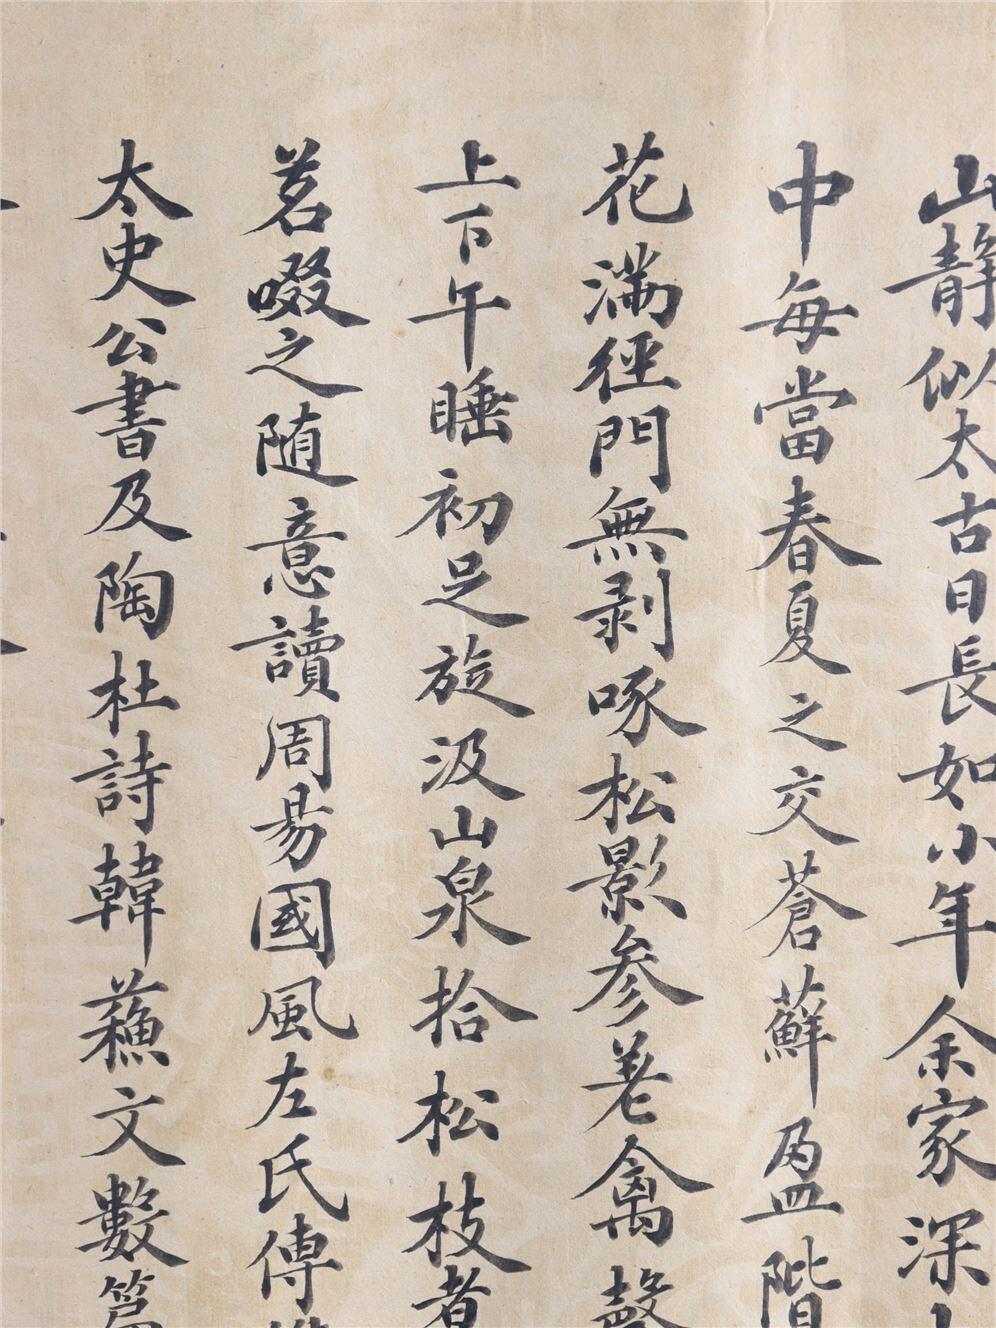 山静似太古日長如小年余家深
中每當春夏之交蒼蘚盈階
花滿徑門無剥啄松影参差禽聲
上下午睡初足旋汲山泉拾松枝煮
茗啜之随意讀周易國風左氏傳
太史公書及陶杜詩韓蘓文數篇